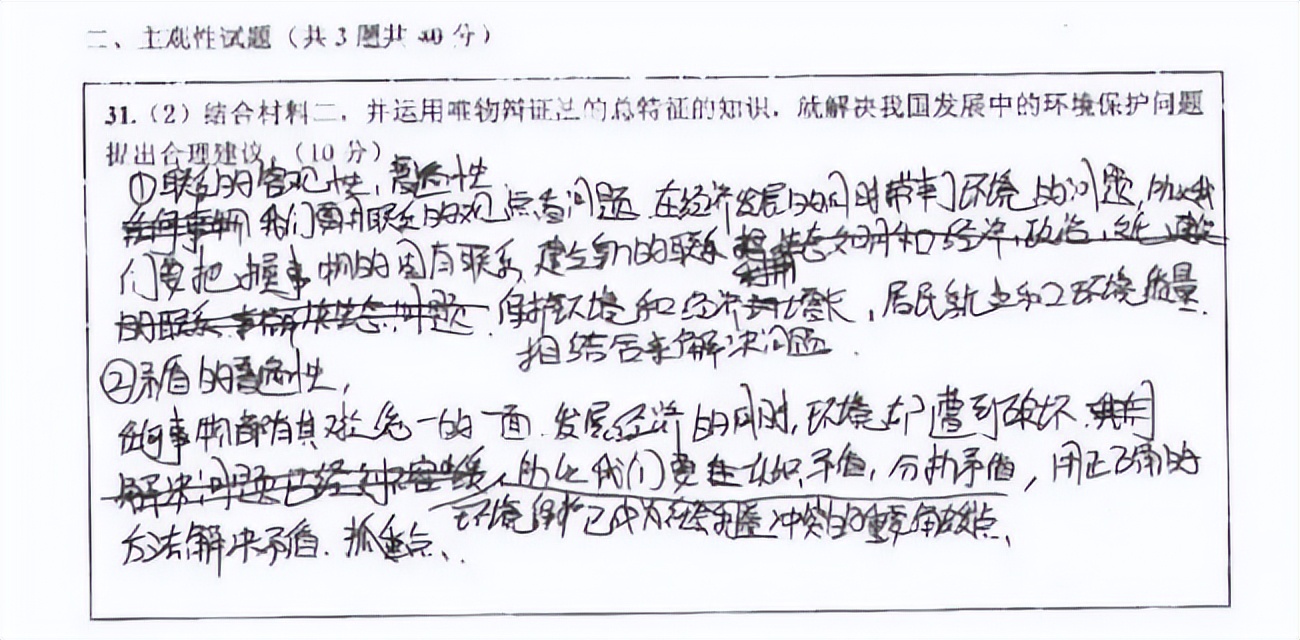 二、主观性试题（共3题共40分）
31.（2）结合材料二，并运用唯物辩证法的总特征的知识，就解决我国发展中的环境保护问题
提出合理建议。（10分）
①联系的客观性，普遍性
任何事物 我们要用联系的观点看问题 在经济发展的同时带来了环境的问题，所以我
们要把握事物的固有联系，建立新的联系 把生态文明和经济，政治，文化，建设
的联系 来解决生态问题 保护环境和经济增长，居民就业和环境质量
相结合来解决问题.
②矛盾的普遍性，
任何事物都有其对立统一的一面.发展经济的同时，环境却遭到破坏.
解决问题已经刻不容缓，所以我们要 认识矛盾，分析矛盾，用正确的
环境保护已成为社会 冲突的重要 点、
方法解决矛盾.抓重点、.